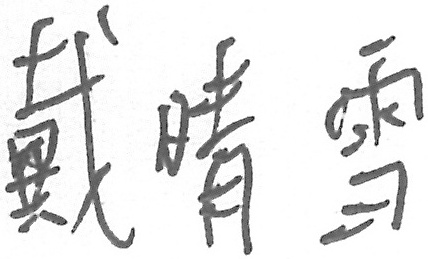 戴晴雪